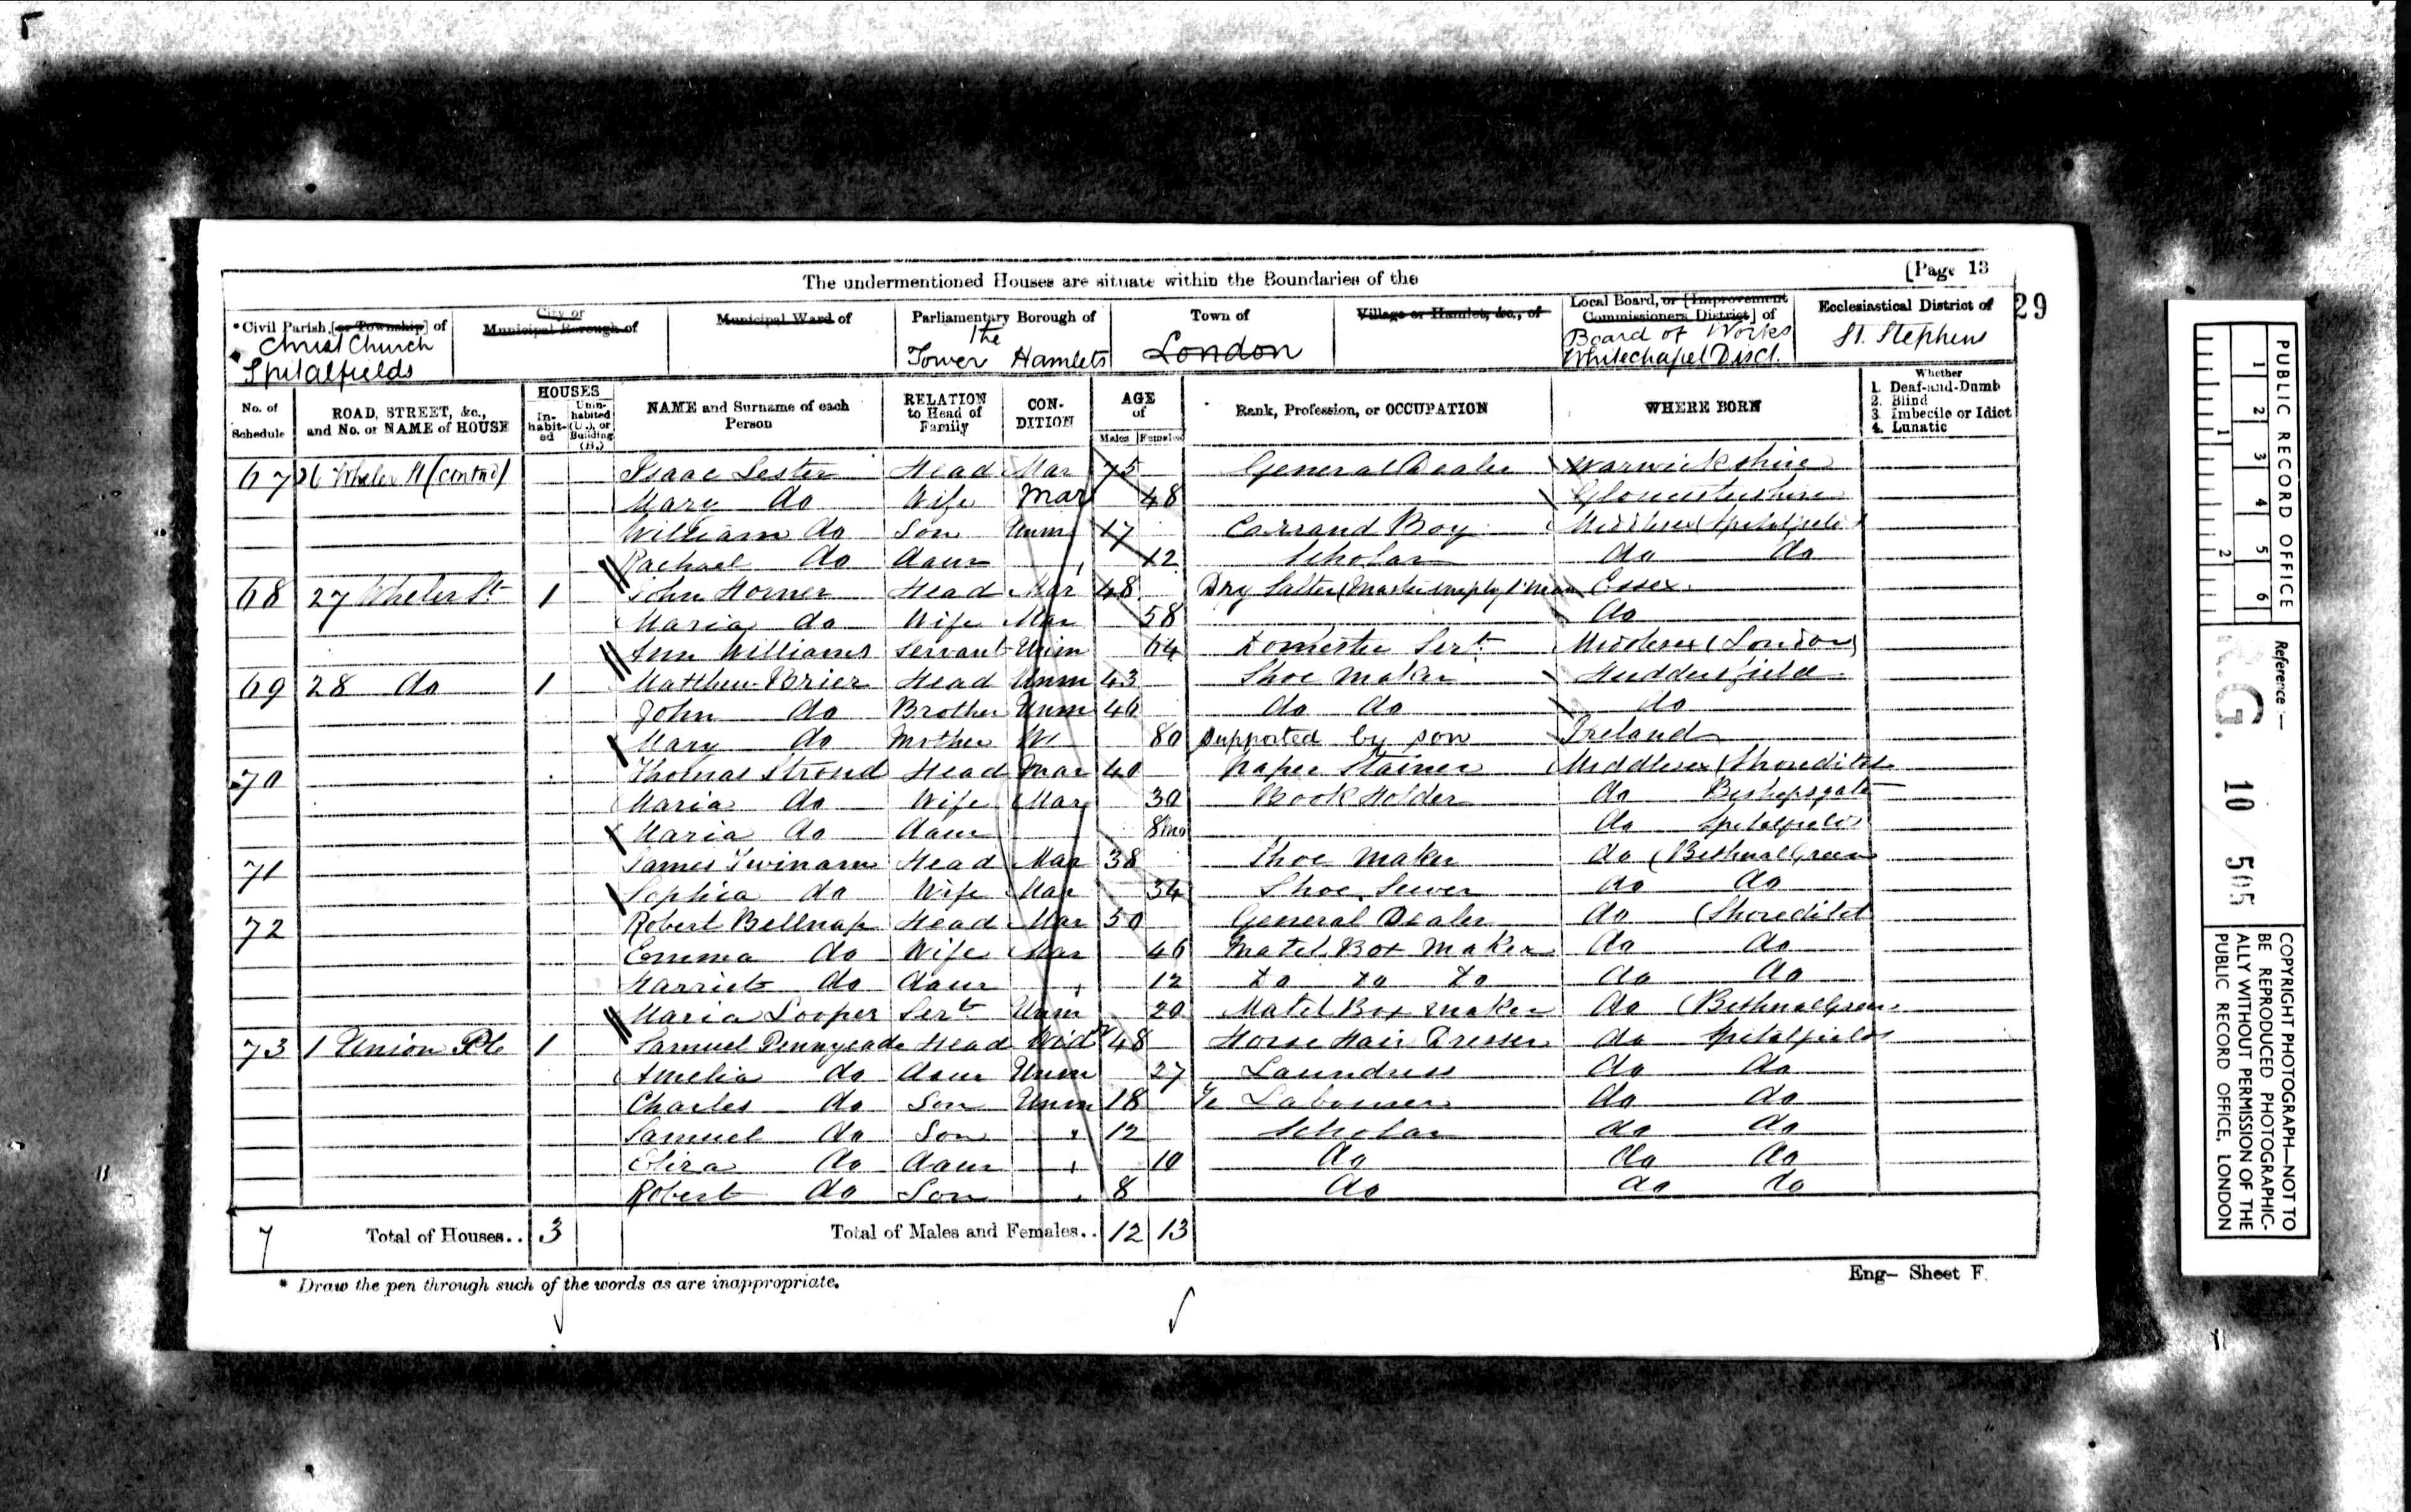 [Page 13
The undermentioned Houses are situate within the Boundaries of the
29
*Civil Parish [or Township] of
Christ Church
Spitalfields
City or
Municipal Borough of
Municipal Ward of
Parliamentary Borough of
the
Tower Hamlets
Town of
London
Village or Hamlet, &c., of
Local Board, or [Improvement
Commissioners District] of
Board of Works
Whitechapel Disct.
Ecclesiastical District of
St. Stephens
No. of Schedule
ROAD, STREET, &c., and No. or NAME of HOUSE
HOUSES
In-habit-ed
Unin-habited (U.), or Building (B.)
NAME and Surname of each Person
RELATION to Head of Family
CON-DITION
AGE of
Males Females
Rank, Profession, or OCCUPATION
WHERE BORN
Whether
1. Deaf-and-Dumb
2. Blind
3. Imbecile or Idiot
4. Lunatic
67 26 Wheler St (contd) Isaac Lester Head Mar 75 General Dealer Warwickshire
Mary do Wife Mar 48 Gloucestershire
William do Son Unm 17 Errand Boy Middlesex Spitalfields
Rachael do Daur 12 Scholar do do
68 27 Wheler St 1 John Horner Head Mar 48 Dry Salter (Master employ 1 Man Essex
Maria do Wife Mar 58 do
Ann Williams Servant Unm 64 Domestic Servt Middlesex (London)
69 28 do 1 Matthew Brier Head Unm 43 Shoe Maker Huddersfield
John do Brother Unm 40 do do do
Mary do Mother W 80 Supported by son Ireland
70 Thomas Stroud Head Mar 40 Paper Stainer Middlesex (Shoreditch
Maria do Wife Mar 30 Book Holder do Bishopsgate
Maria do Daur 8mo do Spitalfields
71 James Twinam Head Mar 38 Shoe Maker do (Bethnal Green
Sophia do Wife Mar 34 Shoe Sewer do do
72 Robert Bellnap Head Mar 50 General Dealer do (Shoreditch
Emma do Wife Mar 46 Match Box Maker do do
Harriet do Daur 12 Do Do Do do do
Maria Looper Servt Unm 20 Match Box Maker do (Bethnal Green
73 1 Union Ple 1 Samuel Pennyeade Head Widr 48 Horse Hair Dresser do Spitalfields
Amelia do Daur Unm 27 Laundress do do
Charles do Son Unm 18 Labourer do do
Samuel do Son 12 Scholar do do
Eliza do Daur 10 do do do
Robert do Son 8 do do do
7 Total of Houses.. 3 Total of Males and Females.. 12 13
* Draw the pen through such of the words as are inappropriate.
Eng- Sheet F.
PUBLIC RECORD OFFICE
1 2 3 4 5 6
1 2
Reference :—
R.G. 10 505
COPYRIGHT PHOTOGRAPH—NOT TO
BE REPRODUCED PHOTOGRAPHIC-
ALLY WITHOUT PERMISSION OF THE
PUBLIC RECORD OFFICE, LONDON